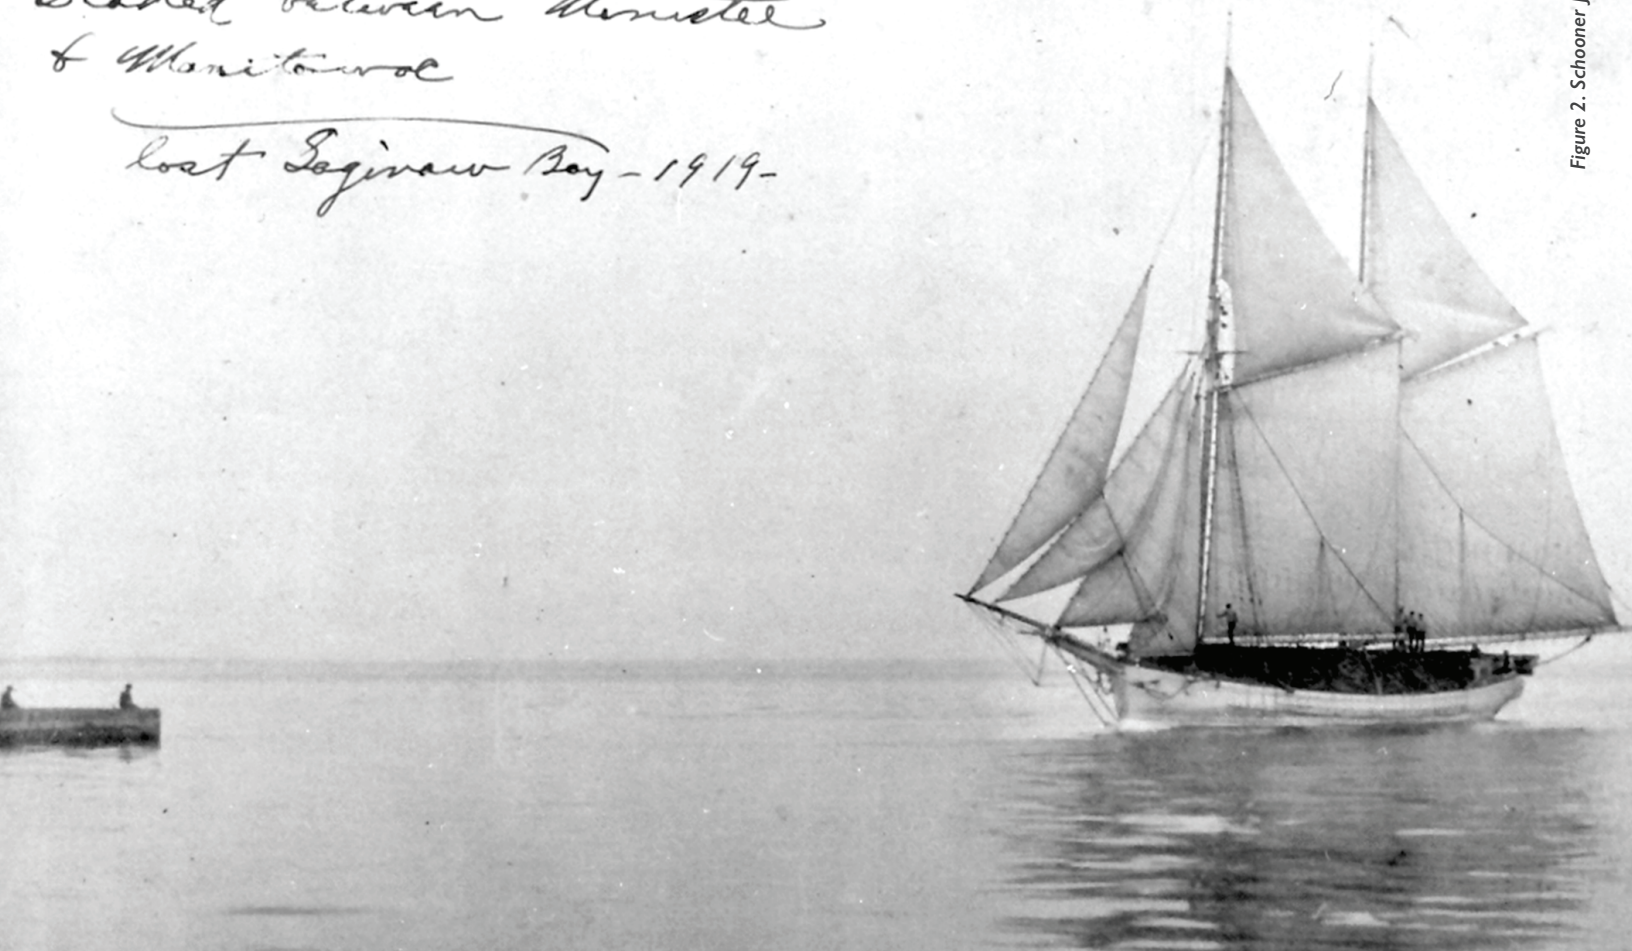 between Manistee
& Manitowoc
lost Saginaw Bay - 1919 -
Figure 2. Schooner J